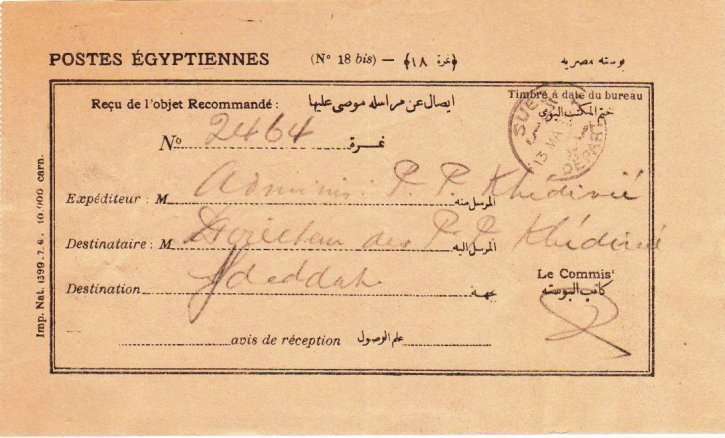 POSTES ÉGYPTIENNES (Nº 18 bis) — (نمرة ١٨) بوسته مصريه
Timbre à date du bureau
Reçu de l'objet Recommandé : ايصال عن مراسله موصى عليها
ختم المكتب اليومى
SUEZ 13 MA DEPART
Nº 2464 نمرة
Expéditeur : M Adminis. P. P. Khédivié المرسل منه
Destinataire : M Directeur des P. P. Khédivié المرسل اليه
Le Commis
Destination Jdeddah جهة كاتب البوسته
avis de réception علم الوصول
Imp. Nat. 1399.7.6. 10/000 carn.